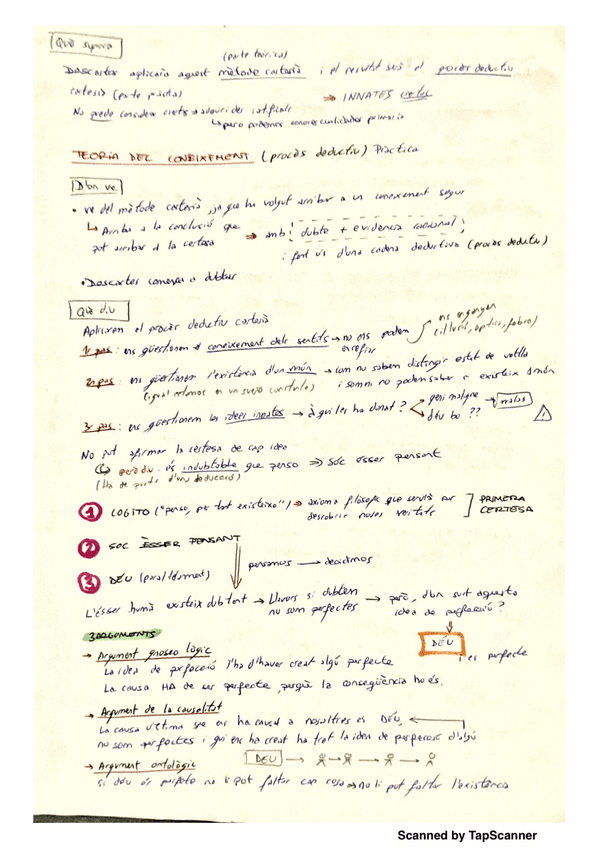 Què suposa
(parte teórica)
Descartes aplicarà aquest mètode cartesià i el resultat serà el procés deductiu
cartesià (parte pràctica) → INNATES certes
No puede considerar ciertas adquirides ni artificials
↳ pero podemos conocer cualidades primarias
TEORIA DEL CONEIXEMENT (procés deductiu) Pràctica
D'on ve
• ve del mètode cartesià, ja que ha volgut arribar a un coneixement segur
↳ Arriba a la conclusió que ⇒ amb dubte + evidència racional,
pot arribar a la certesa i fent ús d'una cadena deductiva (procés deductiu)
• Descartes comença a dubtar
Què diu
Apliquem el procés deductiu cartesià
1r pas: ens qüestionem el coneixement dels sentits → no ens podem refiar
ens enganyen (il·lusió, òptica, febre)
2n pas: ens qüestionem l'existència d'un món → com no sabem distingir estat de vetlla
(igual estamos en un sueño constante) i somni no podem saber si existeix el món
3r pas: ens qüestionem les idees innates → A qui les ha donat? geni maligne → malas
déu bo ??
No pot afirmar la certesa de cap idea
però diu: és indubtable que penso ⇒ Sóc ésser pensant
(Ha de partir d'una deducció)
1 COGITO ("penso, per tant existeixo") → axioma filòsofic que servirà per descobrir noves veritats ] PRIMERA CERTESA
2 SOC ÈSSER PENSANT
pensamos → decidimos
3 DÉU (paral·lelament)
L'ésser humà existeix dubtant → Llavors si dubtem no som perfectes → però, d'on surt aquesta idea de perfecció?
3 ARGUMENTS
DÉU i es perfecte
→ Argument gnoseològic
La idea de perfecció l'ha d'haver creat algú perfecte
La causa HA de ser perfecte, perquè la conseqüència ho és.
→ Argument de la causalitat
La causa última que ens ha causat a nosaltres és DÉU,
no som perfectes i qui ens ha creat ha tret la idea de perfecció d'algú
→ Argument ontològic DEU
Si déu és perfecte no li pot faltar cap cosa → no li pot faltar l'existència
Scanned by TapScanner